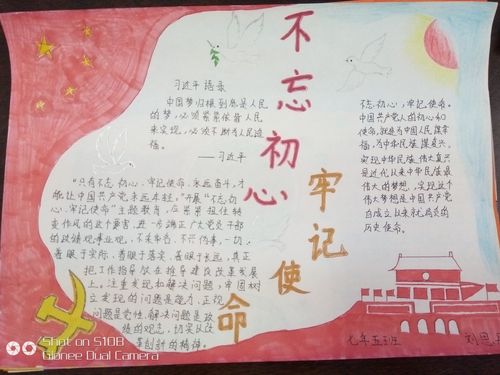 不忘初心
牢记使命
习近平语录
中国梦归根到底是人民
的梦，必须紧紧依靠人民
来实现，必须不断为人民造
福。
——习近平
"只有不忘初心、牢记使命、永远奋斗，才
能让中国共产党永远年轻。"开展"不忘初
心、牢记使命"主题教育，应紧紧扭住转
变作风的这个要害，进一步端正广大党员干部
的政绩观事业观，不来半名、不兴伪事，一切
着眼于实际、着眼于落实、着眼于长远，真正
把工作指导放在推导建设改革发展
上，注重发现和解决问题，中国树
立发现的问题是能力、正视
问题是党性、解决问题是政
绩的观念，切实从改
革创新的精神。
不忘初心，牢记使命。
中国共产党人的初心和
使命，就是为中国人民谋幸
福，为中华民族谋复兴。
实现中华民族伟大复兴
是近代以来中华民族最
伟大的梦想，实现这个
伟大梦想是中国共产党
自成立以来就肩负的
历史使命。
七年五班
刘恩
Shot on S10B
Gionee Dual Camera